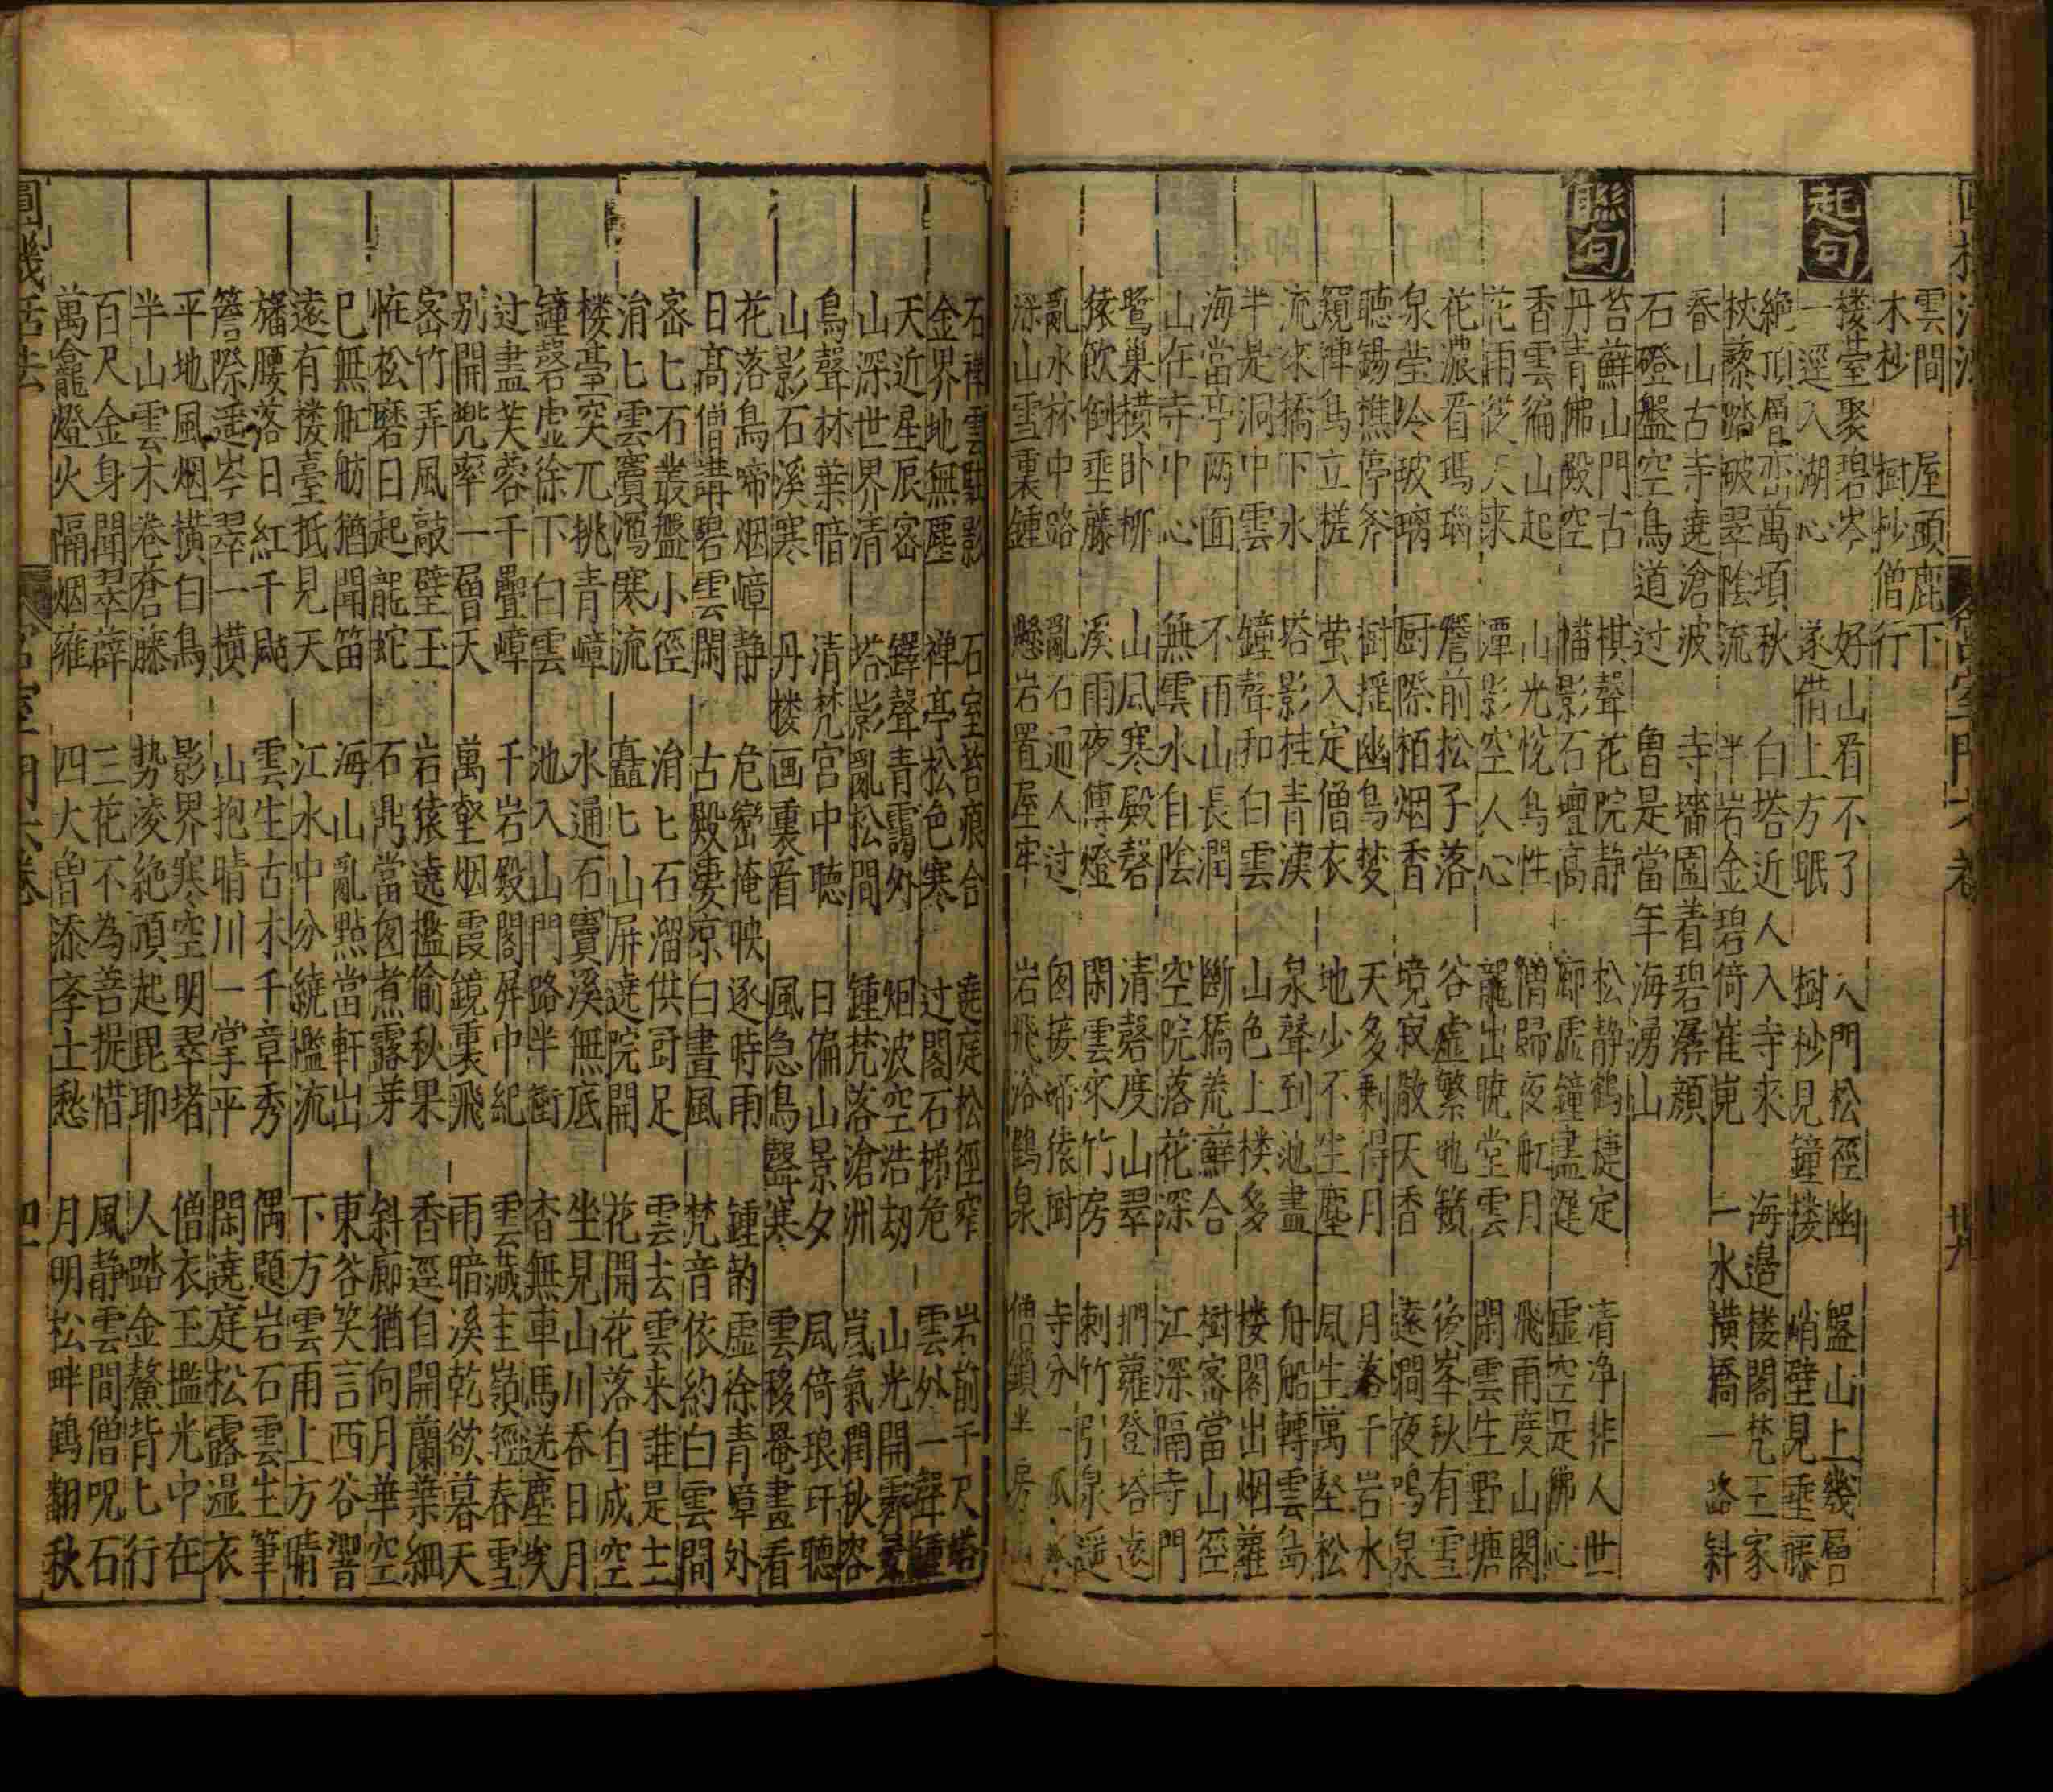 雲間　屋頭鹿下
木杪　樹抄僧行
起句
楼室聚碧岑　好山看不了　入門松徑幽　盤山上幾層
一逕入湖心　遂借上方眠　樹杪見鐘楼　峭壁見垂藤
絶頂層峦萬頃秋　白塔近人入寺来　海邉楼閣梵王家
杖藜踏破翠陰流　半岩金碧倚崔嵬　一水横橋一路斜
春山古寺遶滄波　寺墻圖着碧潺顔
石磴盤空鳥道过　魯是當年海湧山
聮句
苔蘚山門古　棋聲花院静　松静鶴棲定　清净非人世
丹青佛殿空　幡影石壇高　廊虚鐘盡遲　虚空是佛心
香雲徧山起　山光恱鳥性　僧歸夜舡月　飛雨度山閣
花雨從天来　潭影空人心　龍出曉堂雲　閑雲生野塘
花濃看瑪瑙　簷前松子落　谷虚繁地籟　後峯秋有雪
泉瑩吟玻璃　厨際栢烟香　境寂散天香　遠澗夜鳴泉
聽錫樵停斧　樹揺幽鳥夢　天多剰得月　月落千岩水
窺禅鳥立槎　萤入定僧衣　地少不生塵　風生萬壑松
流來橋下水　塔影挂青漢　泉聲到池盡　舟船轉雲島
半是洞中雲　鐘聲和白雲　山色上楼多　楼閣出烟蘿
海當亭两面　不雨山長潤　斷橋荒蘚合　樹密當山徑
山在寺中心　無雲水自陰　空院落花深　江深隔寺門
鷺巢横卧栁　山風寒殿磬　清磬度山翠　捫蘿登塔遠
猿飲倒垂藤　溪雨夜傳燈　閑雲來竹房　刺竹引泉遥
亂水林中路　亂石通人过　囱接啼猿樹　寺分一
深山雪裏鍾　懸岩置屋牢　岩飛浴鶴泉　僧鎖
石禅雲駐影　石室苔痕合　遶庭松徑窄　岩前千尺塔
金界地無塵　禅亭松色寒　过閣石梯危　雲外一聲鍾
天近星辰密　鐸聲青靄外　烟波空浩刼　山光開霽景
山深世界清　塔影亂松間　鍾梵落滄洲　嵐氣潤秋容
鳥聲林葉暗　清梵宮中聴　日偏山景夕　風倚琅玕聴
山影石溪寒　丹楼画裏看　風急鳥聲寒　雲移罨畫看
花落鳥啼烟嶂静　危巒掩映逐時雨　鍾韵虚徐青嶂外
日髙僧講碧雲閑　古殿凄凉白晝風　梵音依約白雲間
宻匕石叢盤小徑　涓匕石溜供厨足　雲去雲来誰是主
涓匕雲竇瀉寒流　矗匕山屏遶院開　花開花落自成空
楼臺突兀挑青嶂　水通石竇溪無底　坐見山川吞日月
鐘磬虚徐下白雲　池入山門路半衝　杳無車馬送塵埃
过盡芙蓉千疊嶂　千岩殿閣屏中紀　雲藏主嶺徑春雪
别開兠率一層天　萬壑烟霞鏡裏飛　雨暗溪乾欲暮天
宻竹弄風敲壁玉　岩猿遶檻偷秋果　香逕自開蘭葉細
恠松磨日起龍蛇　石鼎當囱煮露芽　斜廊猶向月華空
巳無舡舫猶聞笛　海山亂點當軒出　東谷笑言西谷響
遠有楼臺抵見天　江水中分繞檻流　下方雲雨上方晴
旛腰落日紅千颭　雲生古木千章秀　偶題岩石雲生筆
簷際遥岑翠一横　山抱晴川一掌平　閑遶庭松露濕衣
平地風烟横白鳥　影界寒空明翠堵　僧衣玉檻光中在
半山雲木巻蒼藤　勢凌絶頂起毘耶　人踏金鰲背匕行
百尺金身聞翠薜　三花不為菩提惜　風静雲間僧呪石
萬龕燈火隔烟雍　四大曽添斈士愁　月明松畔鶴翻秋
圓機活法　宮室門六卷　四十